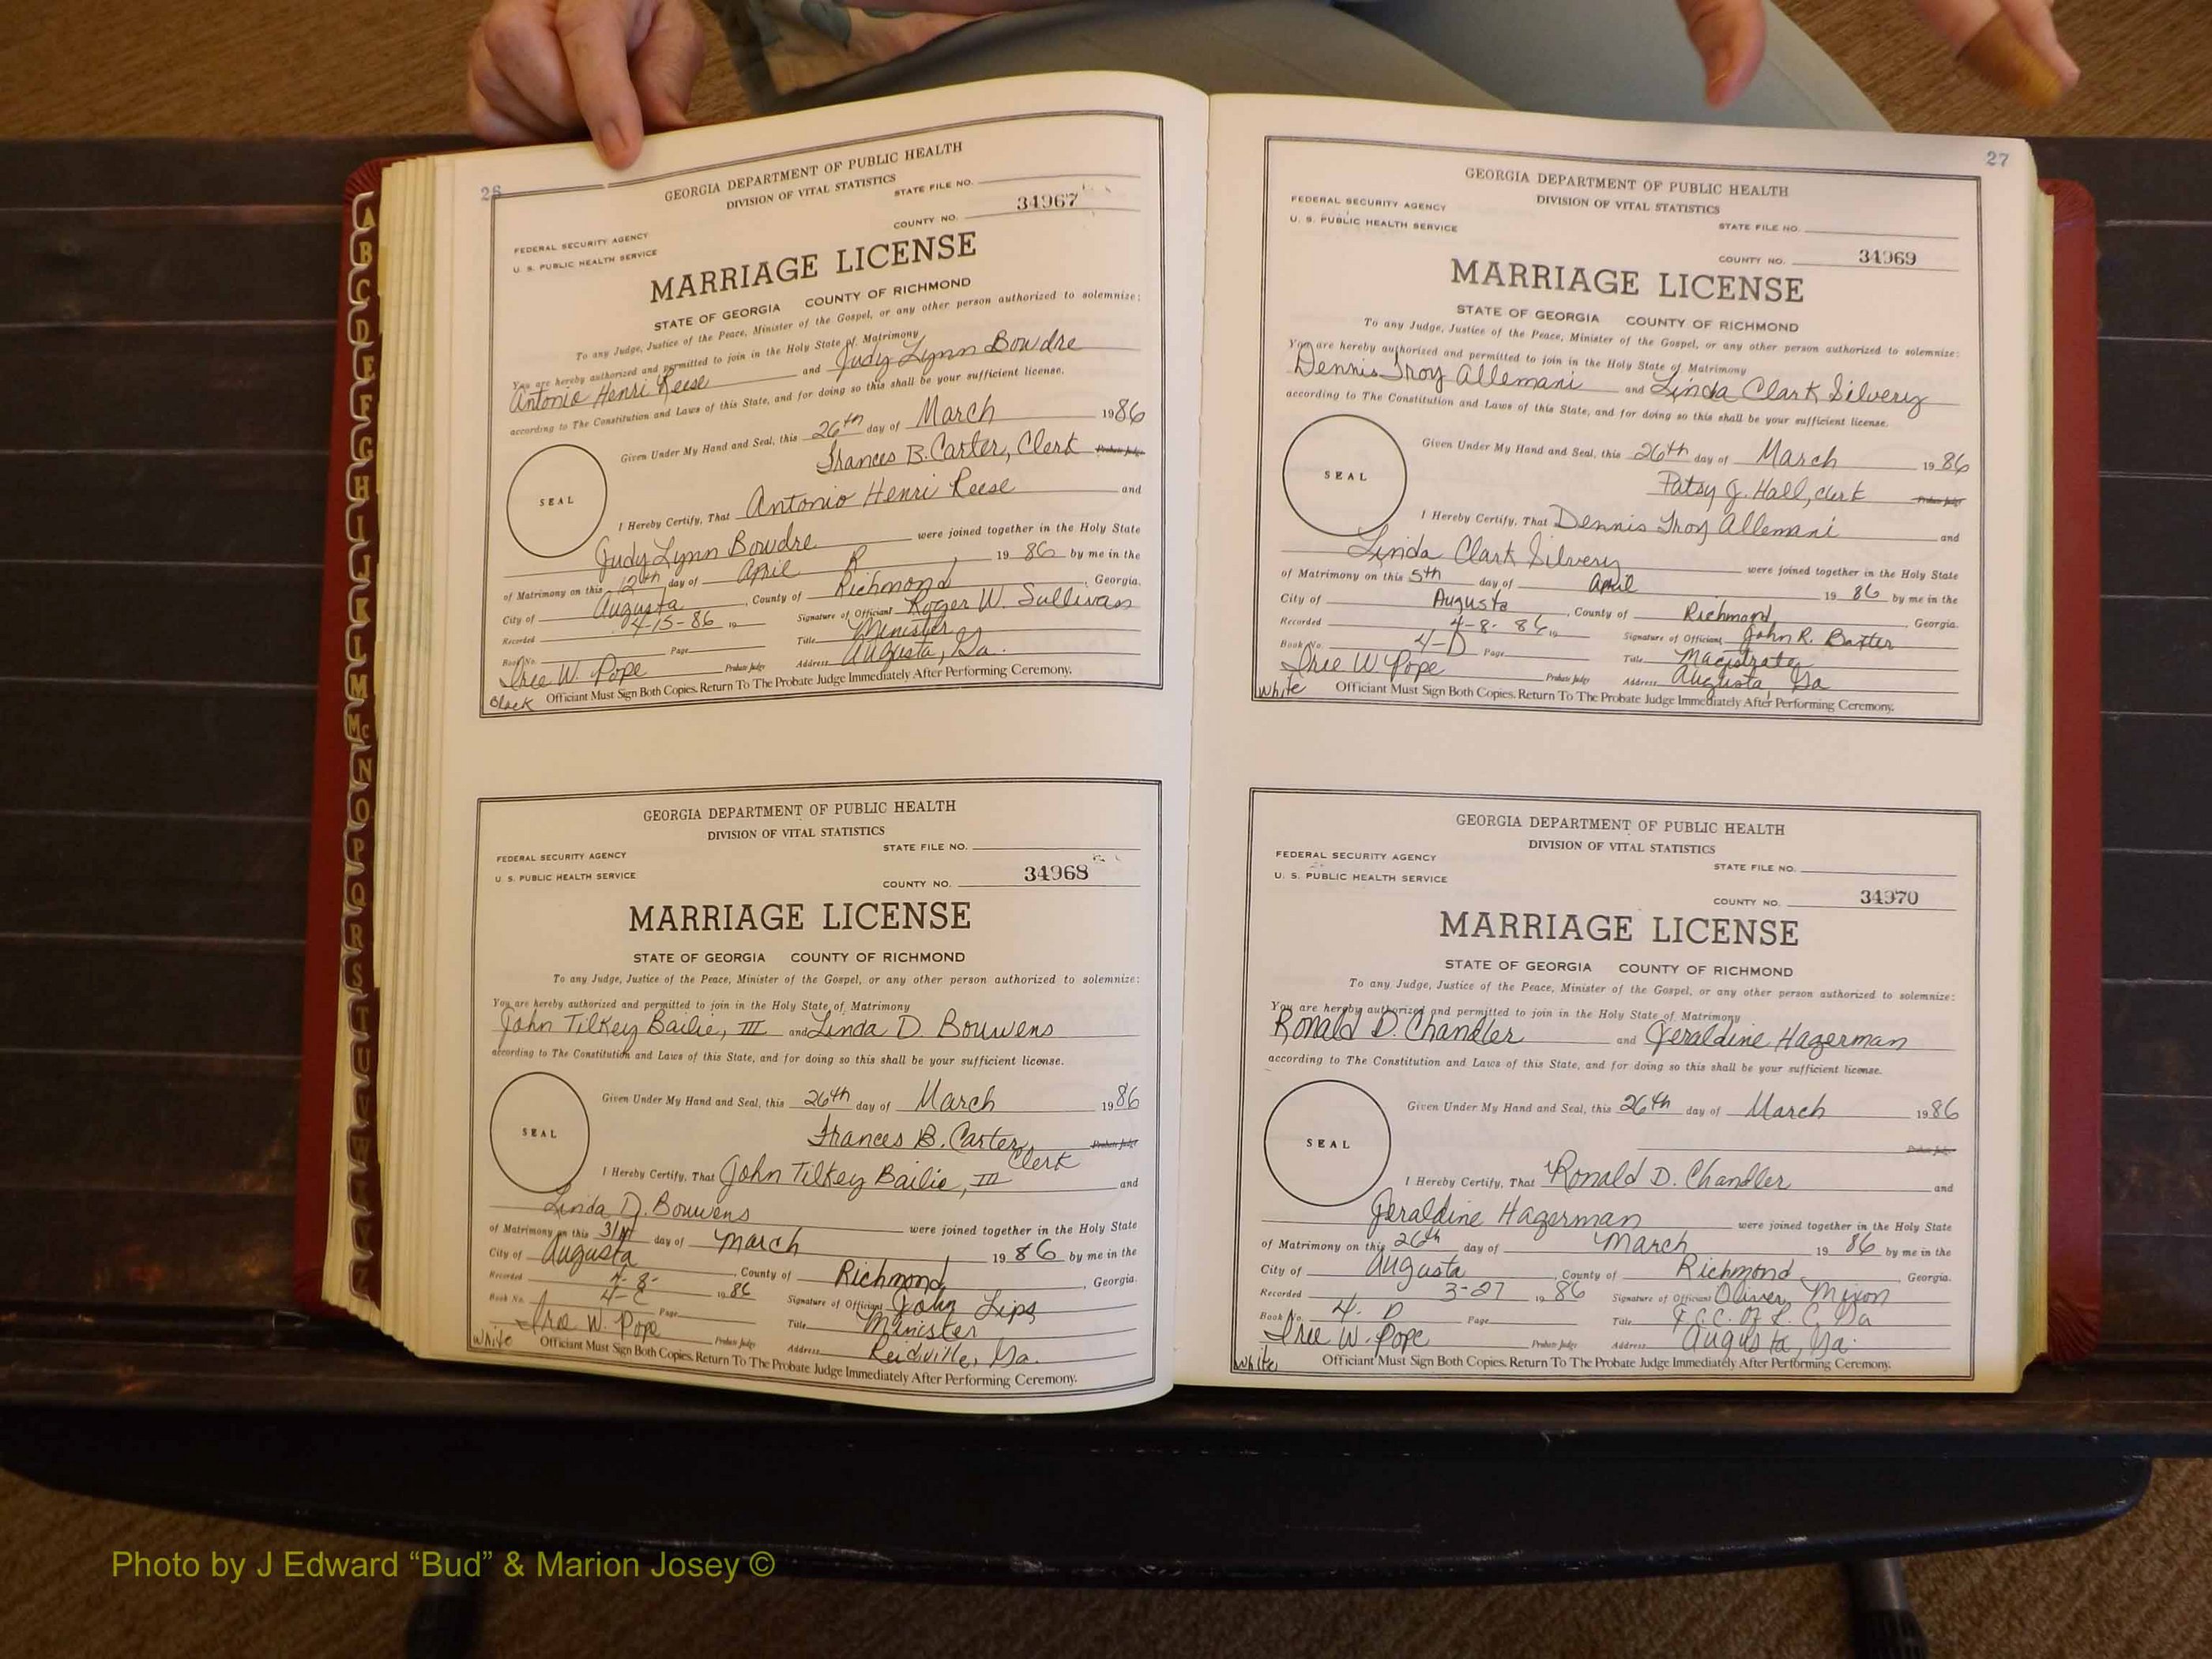 26
GEORGIA DEPARTMENT OF PUBLIC HEALTH
DIVISION OF VITAL STATISTICS
STATE FILE NO.
FEDERAL SECURITY AGENCY
U. S. PUBLIC HEALTH SERVICE
COUNTY NO. 34967
MARRIAGE LICENSE
STATE OF GEORGIA COUNTY OF RICHMOND
To any Judge, Justice of the Peace, Minister of the Gospel, or any other person authorized to solemnize:
You are hereby authorized and permitted to join in the Holy State of Matrimony
Antonio Henri Reese and Judy Lynn Bowdre
according to The Constitution and Laws of this State, and for doing so this shall be your sufficient license.
Given Under My Hand and Seal, this 26th day of March 1986
Frances B. Carter, Clerk Probate Judge
SEAL
I Hereby Certify, That Antonio Henri Reese and
Judy Lynn Bowdre were joined together in the Holy State
of Matrimony on this 12th day of April 19 86 by me in the
City of Augusta, County of Richmond, Georgia.
Recorded 4-15-86 19 Signature of Officiant Roger W. Sullivan
Book No. Page Title Minister
W. Pope Probate Judge Address Augusta, Ga.
Black Officiant Must Sign Both Copies. Return To The Probate Judge Immediately After Performing Ceremony.
GEORGIA DEPARTMENT OF PUBLIC HEALTH
DIVISION OF VITAL STATISTICS
STATE FILE NO.
FEDERAL SECURITY AGENCY
U. S. PUBLIC HEALTH SERVICE
COUNTY NO. 34968
MARRIAGE LICENSE
STATE OF GEORGIA COUNTY OF RICHMOND
To any Judge, Justice of the Peace, Minister of the Gospel, or any other person authorized to solemnize:
You are hereby authorized and permitted to join in the Holy State of Matrimony
John Tilkey Bailie, III and Linda D. Bouwens
according to The Constitution and Laws of this State, and for doing so this shall be your sufficient license.
Given Under My Hand and Seal, this 26th day of March 1986
Frances B. Carter, Clerk Probate Judge
SEAL
I Hereby Certify, That John Tilkey Bailie, III and
Linda D. Bouwens were joined together in the Holy State
of Matrimony on this 31st day of March 19 86 by me in the
City of Augusta, County of Richmond, Georgia.
Recorded 4-8- 19 86 Signature of Officiant John Lips
Book No. 4-C Page Title Minister
W. Pope Probate Judge Address Reidville, Ga.
White Officiant Must Sign Both Copies. Return To The Probate Judge Immediately After Performing Ceremony.
27
GEORGIA DEPARTMENT OF PUBLIC HEALTH
DIVISION OF VITAL STATISTICS
FEDERAL SECURITY AGENCY
U. S. PUBLIC HEALTH SERVICE
STATE FILE NO.
COUNTY NO. 34969
MARRIAGE LICENSE
STATE OF GEORGIA COUNTY OF RICHMOND
To any Judge, Justice of the Peace, Minister of the Gospel, or any other person authorized to solemnize:
You are hereby authorized and permitted to join in the Holy State of Matrimony
Dennis Troy Allemani and Linda Clark Silvery
according to The Constitution and Laws of this State, and for doing so this shall be your sufficient license.
Given Under My Hand and Seal, this 26th day of March 1986
Patsy J. Hall, clerk Probate Judge
SEAL
I Hereby Certify, That Dennis Troy Allemani and
Linda Clark Silvery were joined together in the Holy State
of Matrimony on this 5th day of April 19 86 by me in the
City of Augusta, County of Richmond, Georgia.
Recorded 4-8-86 19 Signature of Officiant John R. Baxter
Book No. 4-D Page Title Magistrate
W. Pope Probate Judge Address Augusta, Ga
White Officiant Must Sign Both Copies. Return To The Probate Judge Immediately After Performing Ceremony.
GEORGIA DEPARTMENT OF PUBLIC HEALTH
DIVISION OF VITAL STATISTICS
FEDERAL SECURITY AGENCY
U. S. PUBLIC HEALTH SERVICE
STATE FILE NO.
COUNTY NO. 34970
MARRIAGE LICENSE
STATE OF GEORGIA COUNTY OF RICHMOND
To any Judge, Justice of the Peace, Minister of the Gospel, or any other person authorized to solemnize:
You are hereby authorized and permitted to join in the Holy State of Matrimony
Ronald D. Chandler and Geraldine Hagerman
according to The Constitution and Laws of this State, and for doing so this shall be your sufficient license.
Given Under My Hand and Seal, this 26th day of March 1986
Probate Judge
SEAL
I Hereby Certify, That Ronald D. Chandler and
Geraldine Hagerman were joined together in the Holy State
of Matrimony on this 26th day of March 19 86 by me in the
City of Augusta, County of Richmond, Georgia.
Recorded 3-27 19 86 Signature of Officiant Oliver Mixon
Book No. 4-D Page Title
W. Pope Probate Judge Address Augusta, Ga.
White Officiant Must Sign Both Copies. Return To The Probate Judge Immediately After Performing Ceremony.
A
B
C
D
E
F
G
H
I
J
K
L
M
Mc
N
O
P
Q
R
S
T
U
V
W
Photo by J Edward “Bud” & Marion Josey ©